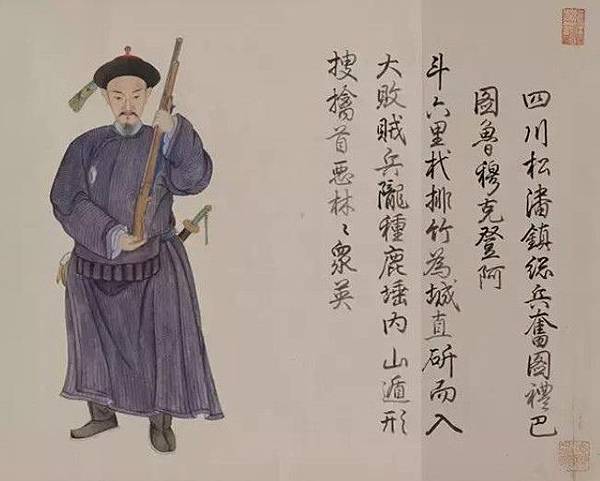 四川松潘鎮總兵奮圖禮巴
圖魯穆克登阿
斗六里杙排竹為城直斫而入
大敗賊兵隴種鹿埵内山遁形
搜擒首惡林〻眾英